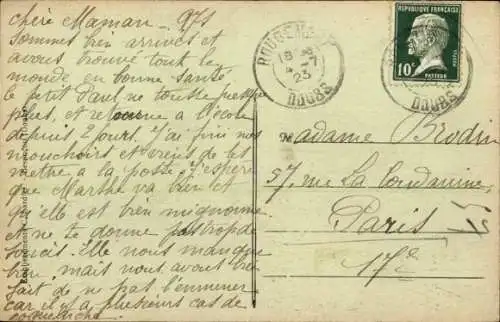 chère Maman 9 7/
sommes bien arrivés et
avons trouvé tout le
monde en bonne santé
le petit Paul ne tousse presque
plus, et retourne à l'école
depuis 2 jours. J'ai fini mes
mouchoirs et viens de les
mettre à la poste. J'espère
que Marthe va bien et
qu'elle est bien mignonne
et ne te donne pas trop de
soucis. Elle nous manque
bien, mais nous avons bien
fait de ne pas l'emmener
car il y a plusieurs cas de
coqueluche
ROUGEMONT
18
7
23
DOUBS
REPUBLIQUE FRANÇAISE
POSTES
10c
PASTEUR
DOUBS
Madame Brodin
57, rue La Condamine
Paris
17e